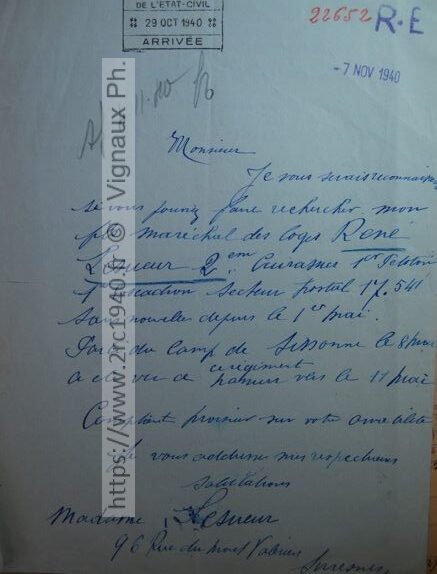 DE L'ETAT-CIVIL
29 OCT 1940
ARRIVÉE
22652 R.E
- 7 NOV 1940
Monsieur
Je vous serais reconnaissante
si vous pouviez faire rechercher mon
fils maréchal des logis René
Lesueur 2em Cuirassier 1er Peloton
secteur postal 17.541
sans nouvelles depuis le 1er mai.
Parti du Camp de Sissonne le 8 mai
régiment
a été vu vers le 11 mai
Comptant sur votre amabilité
vous addresse mes respectueuses
salutations
Madame Lesueur
96 Rue du mont Valérien
Suresnes
https://www.2rc1940.fr © Vignaux Ph.